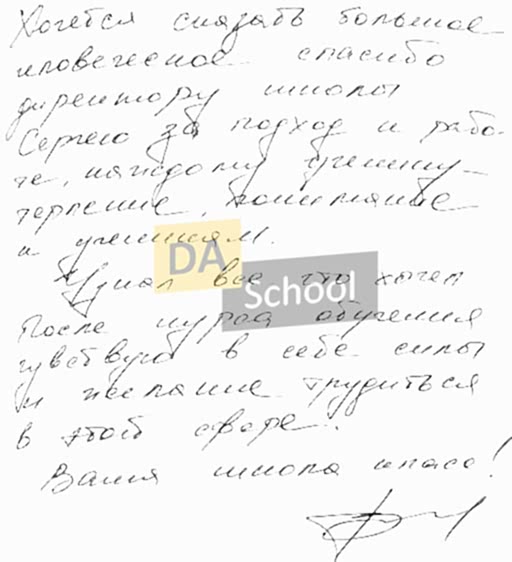 Хочется сказать большое
человеческое спасибо
директору школы
Сергею за подход к рабо-
те, каждому ученику
терпение, понимание
к ученикам.
DA
Узнал все что хотел
School
После курса обучения
чувствую в себе силы
и желание трудиться
в этой сфере.
Ваша школа класс!